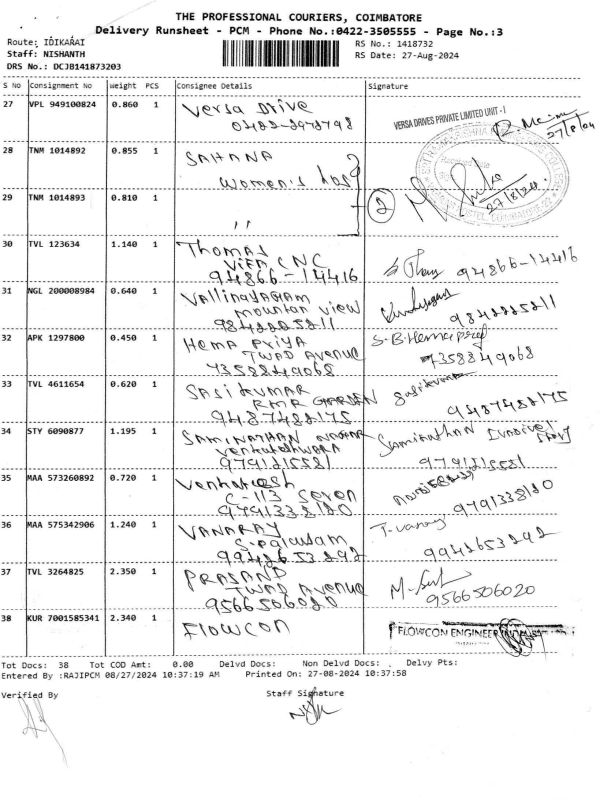 THE PROFESSIONAL COURIERS, COIMBATORE
Delivery Runsheet - PCM - Phone No.:0422-3505555 - Page No.:3
Route: IDIKARAI
RS No.: 1418732
Staff: NISHANTH
RS Date: 27-Aug-2024
DRS No.: DCJB141873203
S No Consignment No Weight PCS Consignee Details Signature
27 VPL 949100824 0.860 1 Versa Drive
VERSA DRIVES PRIVATE LIMITED UNIT - I
27/8/24
28 TNM 1014892 0.855 1 SAHANA
Women's hos
29 TNM 1014893 0.810 1 " 2
27/8/24
30 TVL 123634 1.140 1 Thomas
CNC
94866-14416 94866-14416
31 NGL 200008984 0.640 1 Vallinayagam
mountan view
9842225211 9842225211
32 APK 1297800 0.450 1 Hema Priya S.B.Hema
TWAD Avenue
7358849068 7358849068
33 TVL 4611654 0.620 1 SASIKUMAR Sasikumar
RMR GARDEN
9487482175 9487482175
34 STY 6090877 1.195 1 SAMINATHAN NAGAR Saminathan
Venkateshwara
9791215581 9791215581
35 MAA 573260892 0.720 1 Venkatesh
C-113 Seven
9791338120 9791338120
36 MAA 575342906 1.240 1 VANARAY T-Vanaray
S-palayam
9942653292 9942653292
37 TVL 3264825 2.350 1 PRASAND
TWAD Avenue
9566506020 9566506020
38 KUR 7001585341 2.340 1 Flowcon FLOWCON ENGINEER
Tot Docs: 38 Tot COD Amt: 0.00 Delvd Docs: Non Delvd Docs: Delvy Pts:
Entered By :RAJIPCM 08/27/2024 10:37:19 AM Printed On: 27-08-2024 10:37:58
Verified By Staff Signature